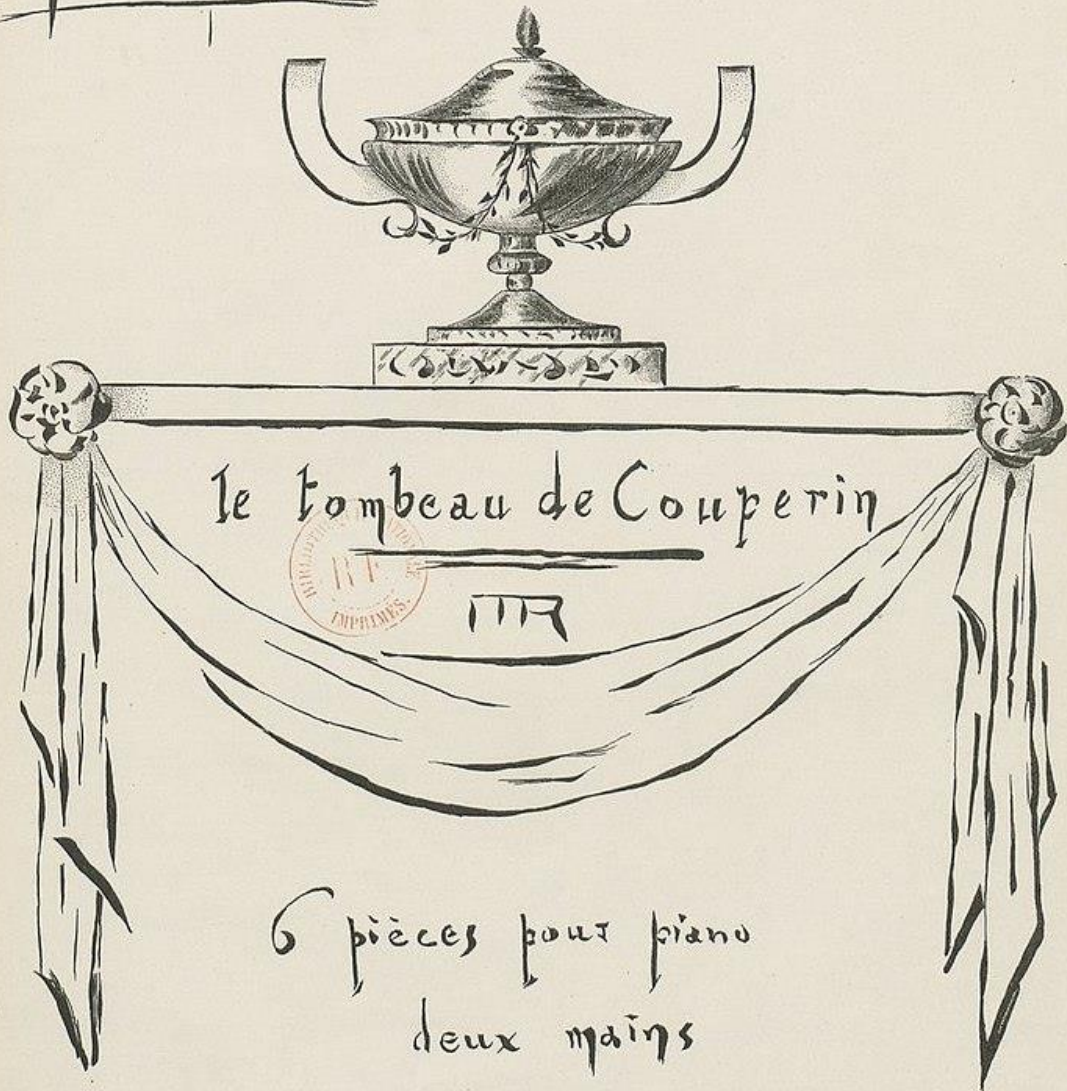 le tombeau de Couperin
BIBLIOTHÈQUE NATIONALE
RF
IMPRIMÉS.
MR
6 pièces pour piano
deux mains